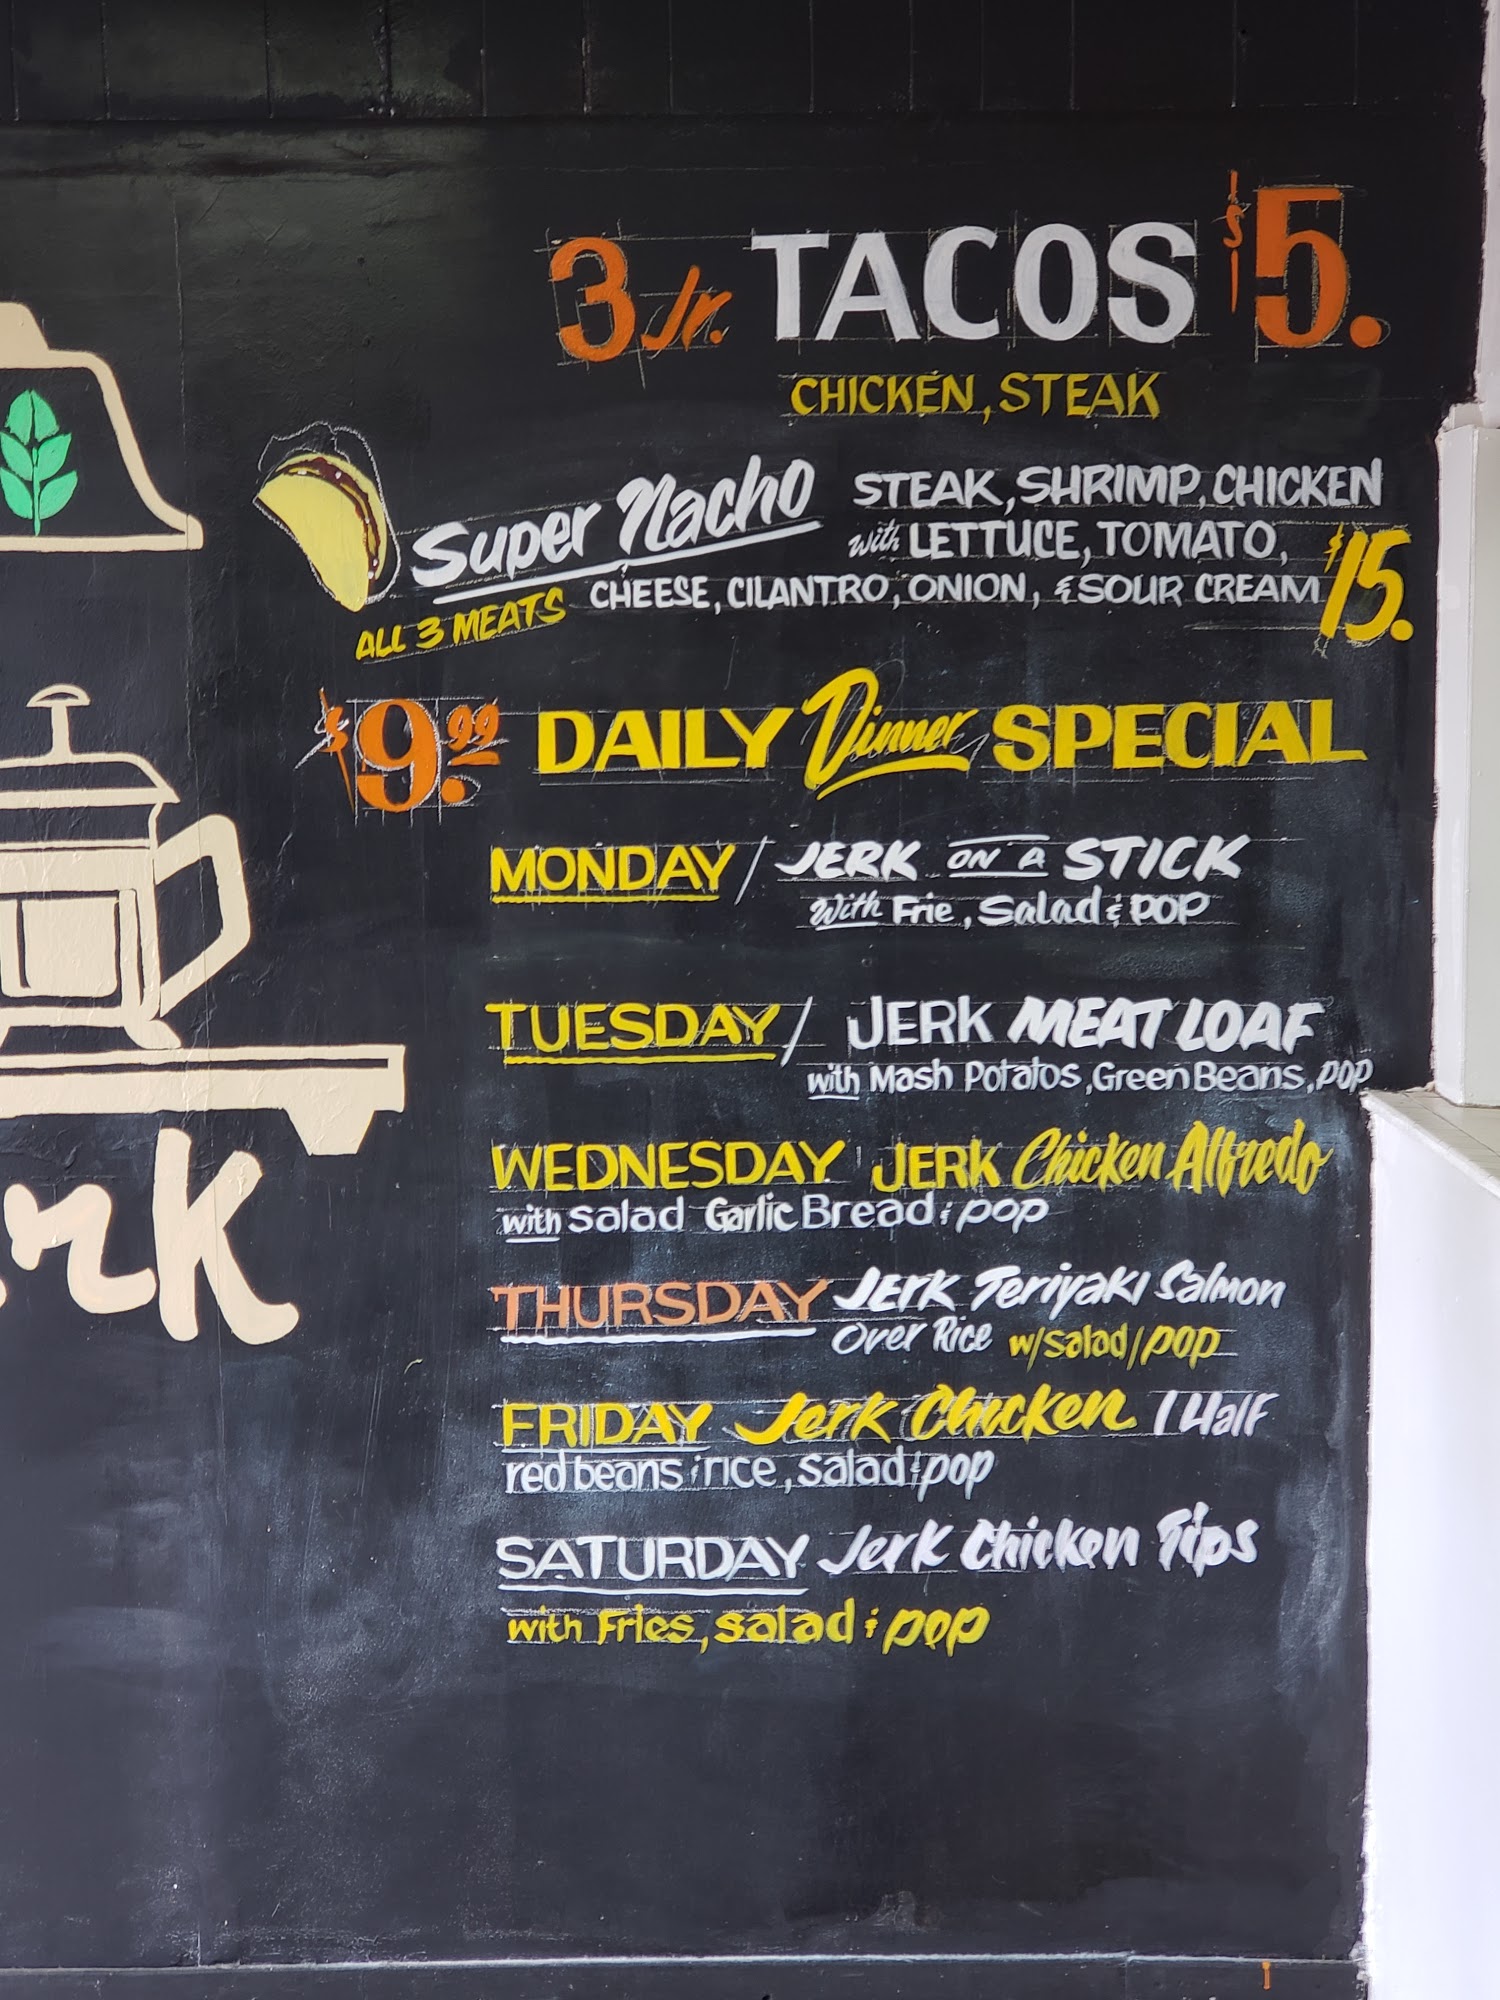 3 Jr. TACOS $5.
CHICKEN, STEAK
Super Nacho
ALL 3 MEATS
STEAK, SHRIMP, CHICKEN
with LETTUCE, TOMATO,
CHEESE, CILANTRO, ONION, & SOUR CREAM $15.
$9.99 DAILY Dinner SPECIAL
MONDAY / JERK ON A STICK
With Frie, Salad & POP
TUESDAY / JERK MEAT LOAF
with Mash Potatos, Green Beans, POP
WEDNESDAY JERK Chicken Alfredo
with Salad Garlic Bread & POP
THURSDAY JERK Teriyaki Salmon
Over Rice w/salad/pop
FRIDAY Jerk Chicken 1 Half
red beans & rice, salad & pop
SATURDAY Jerk Chicken Tips
with Fries, salad & pop